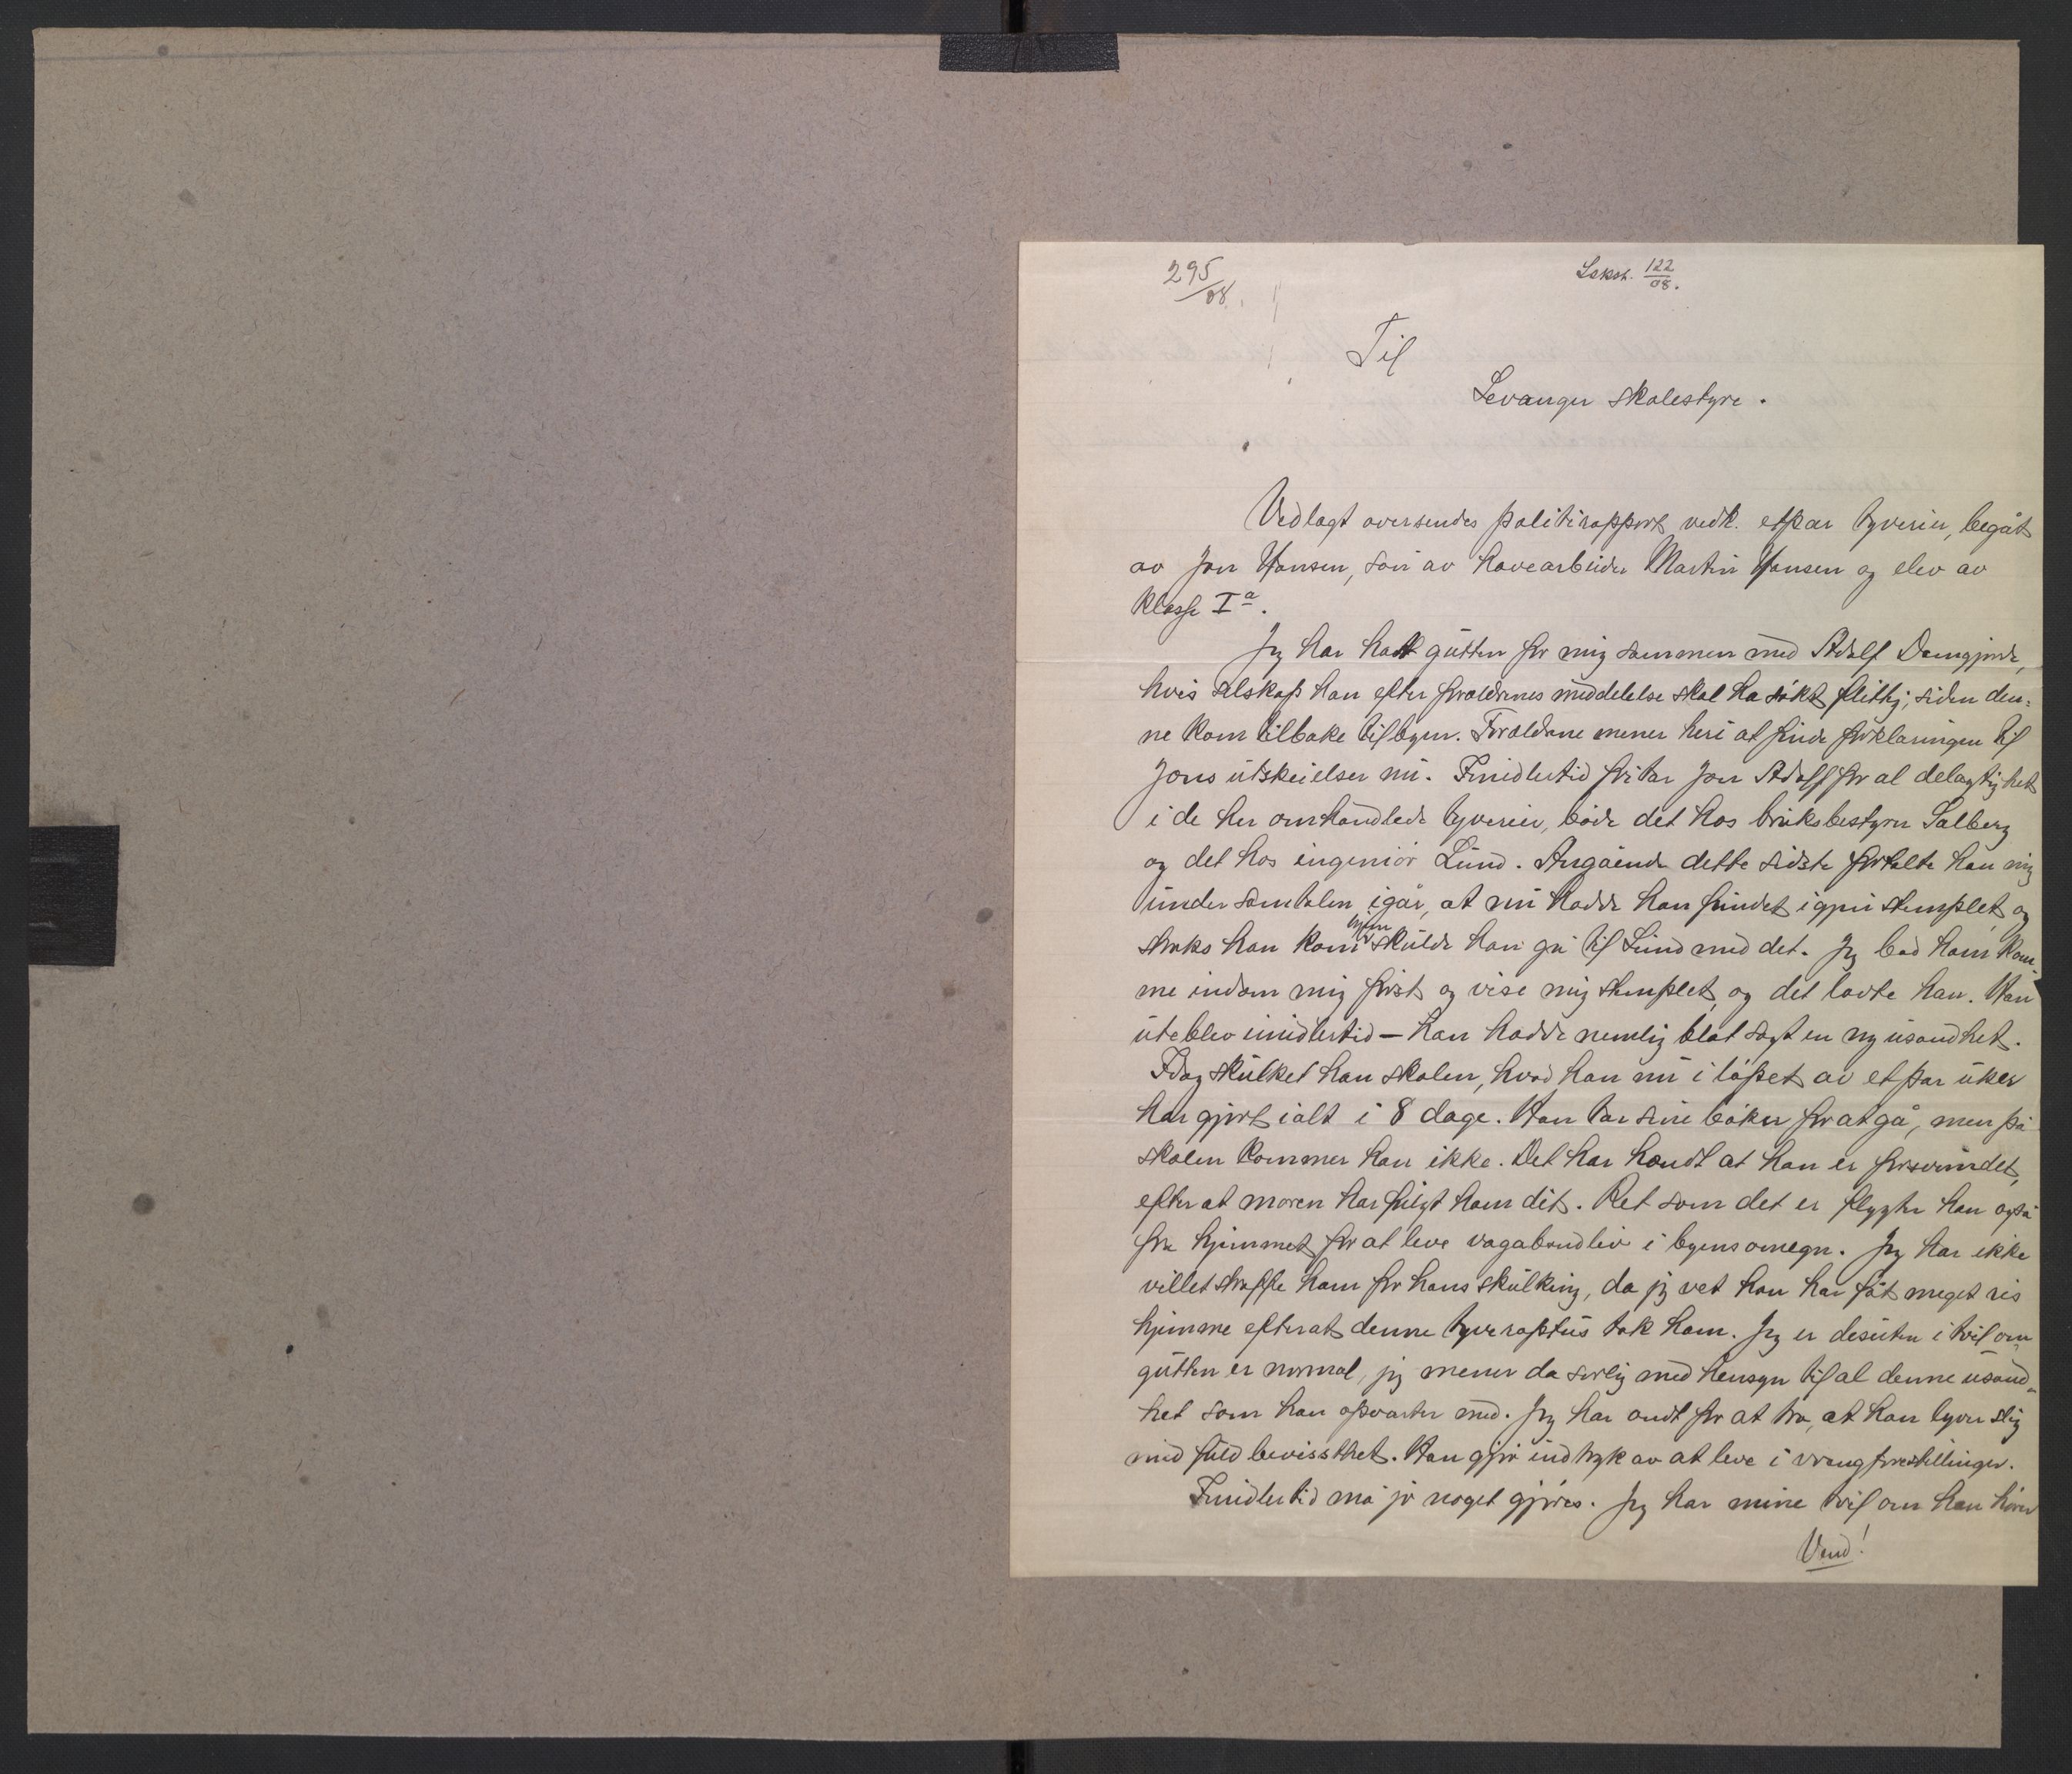 295/08.
Lskst. 122/08.
Til
Levanger skolestyre.
Vedlagt oversendes politirapport vedk. etpar tyverier, begåt
av Jon Hansen, søn av havearbeider Martin Hansen og elev av
klasse Iª.
Jeg har hatt gutten for mig sammen med Adolf Damgjerde,
hvis selskap han efter forældrenes meddelelse skal ha søkt flittig, siden den-
ne kom tilbake til byen. Forældrene mener heri at finde forklaringen til
Jons utskeielser nu. Imidlertid fritar Jon Adolf for al delagtighet
i de her omhandlede tyverier, både det hos bruksbestyrer Salberg
og det hos ingeniør Lund. Angående dette sidste fortalte han mig
under samtalen igår, at nu hadde han fundet igjen stemplet, og
straks han kom hjem skulde han gå til Lund med det. Jeg bad ham kom-
me indom mig først og vise mig stemplet, og det lovte han. Han
uteblev imidlertid – han hadde nemlig blot sagt en ny usandhet.
Idag skulket han skolen, hvad han nu i løpet av etpar uker
har gjort ialt i 8 dage. Han tar sine bøker for at gå, men på
skolen kommer han ikke. Det har hændt at han er forsvundet,
efter at moren har fulgt ham dit. Ret som det er flygter han også
fra hjemmet for at leve vagabondliv i byens omegn. Jeg har ikke
villet straffe ham for hans skulking, da jeg vet han har fåt meget ris
hjemme efterat denne tyveraptus tok ham. Jeg er desuten i tvil om,
gutten er normal, jeg mener da særlig med hensyn til al denne usand-
het som han opvarter med. Jeg har ondt for at tro, at han lyver slig
med fuld bevissthet. Han gjør indtryk av at leve i vrangforestillinger.
Imidlertid må jo noget gjøres. Jeg har mine tvil om han hører
Vend!